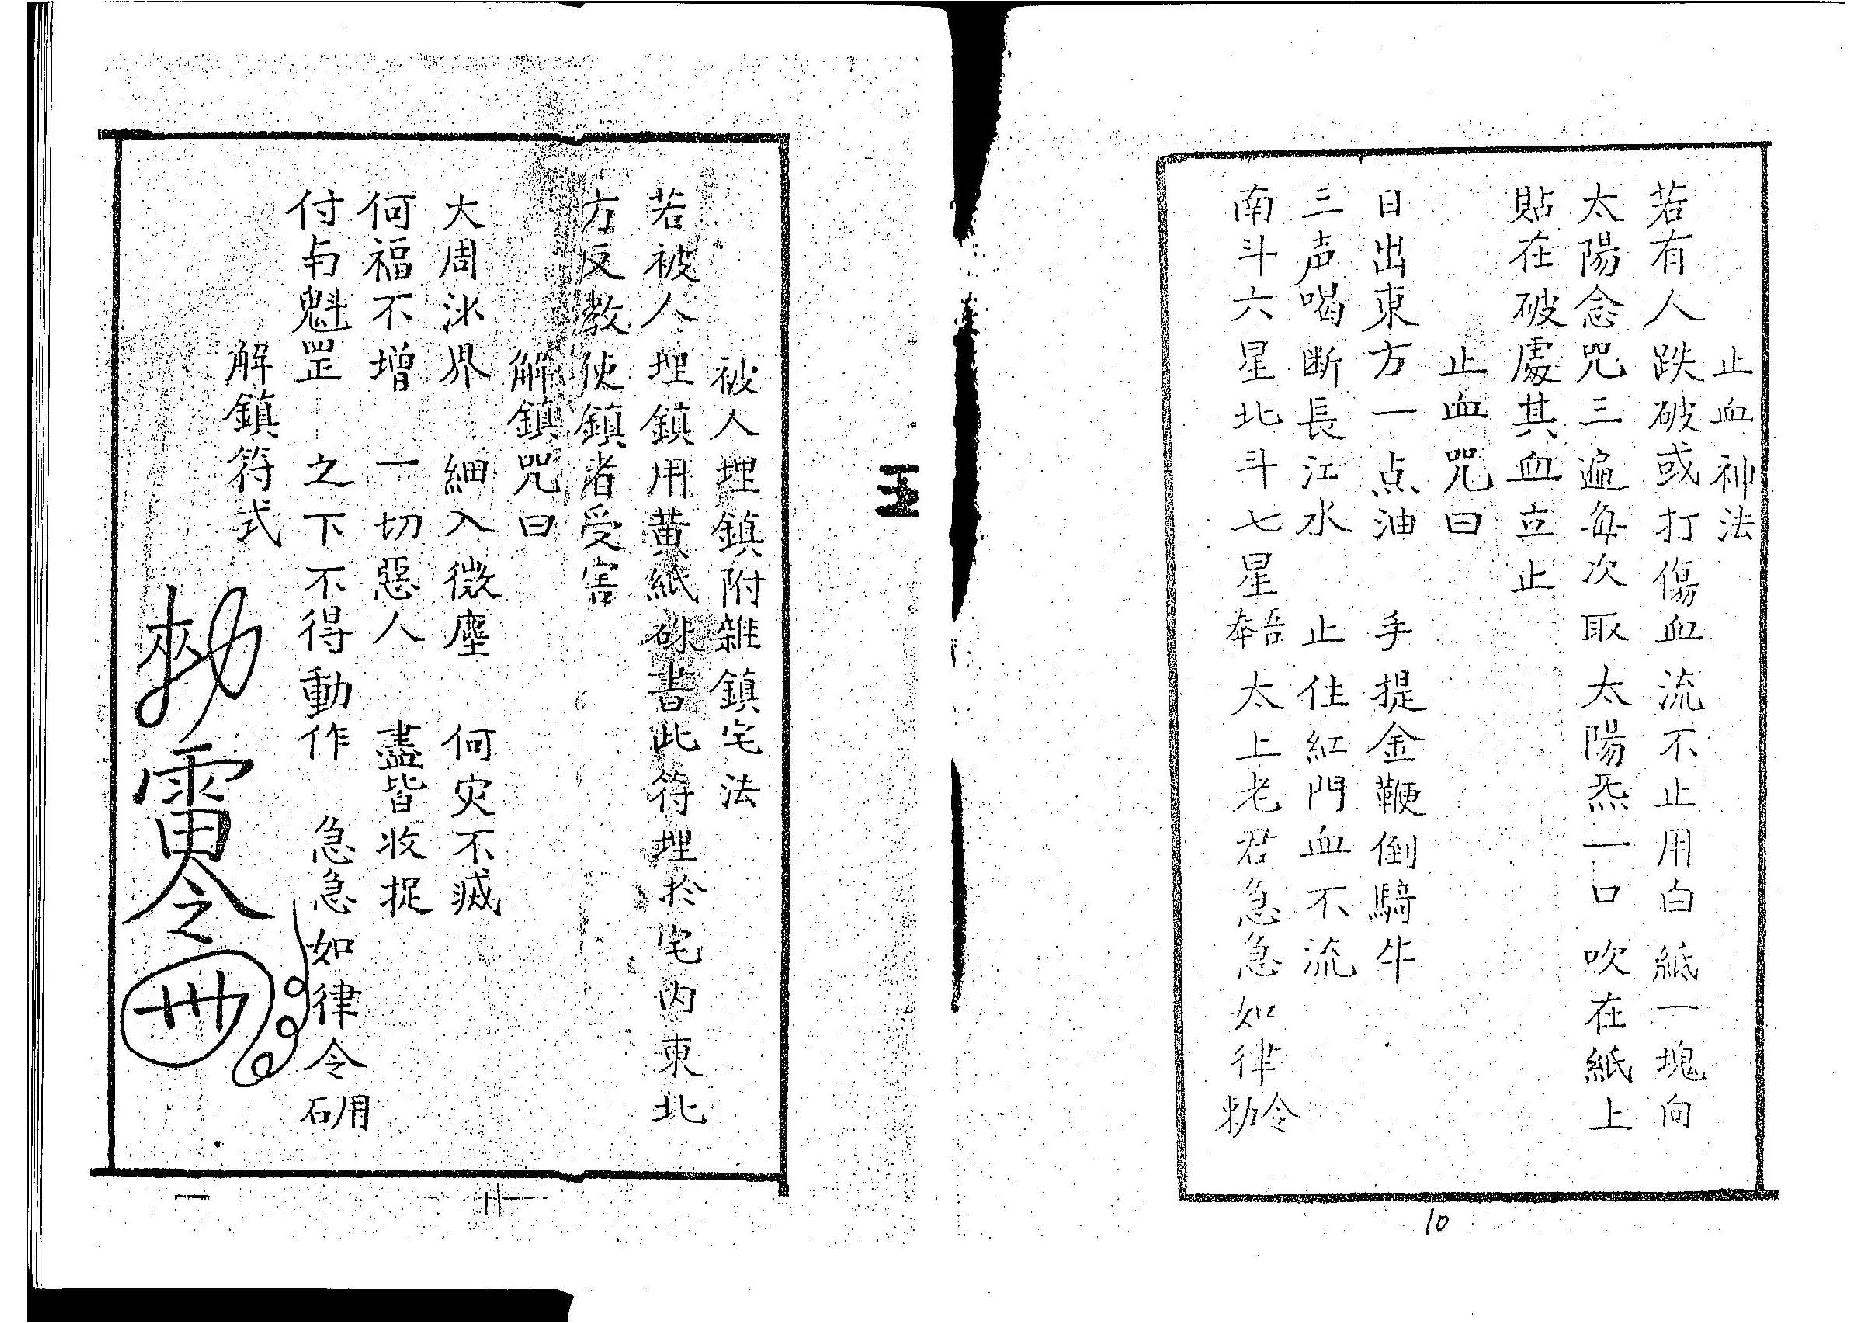 止血神法
若有人跌破或打傷血流不止用白紙一塊向
太陽念咒三遍每次取太陽炁一口吹在紙上
貼在破處其血立止
止血咒曰
日出東方一点油 手提金鞭倒騎牛
三声喝断長江水 止住紅門血不流
南斗六星北斗七星 吾奉太上老君急急如律令勅
10
被人埋鎮附雜鎮宅法
若被人埋鎮用黄紙硃書此符埋於宅內東北
方反教使鎮者受害
解鎮咒曰
大周沙界 細入微塵 何灾不滅
何福不增 一切惡人 盡皆收捉
付与魁罡 之下不得動作 急急如律令
解鎮符式
勅雷令